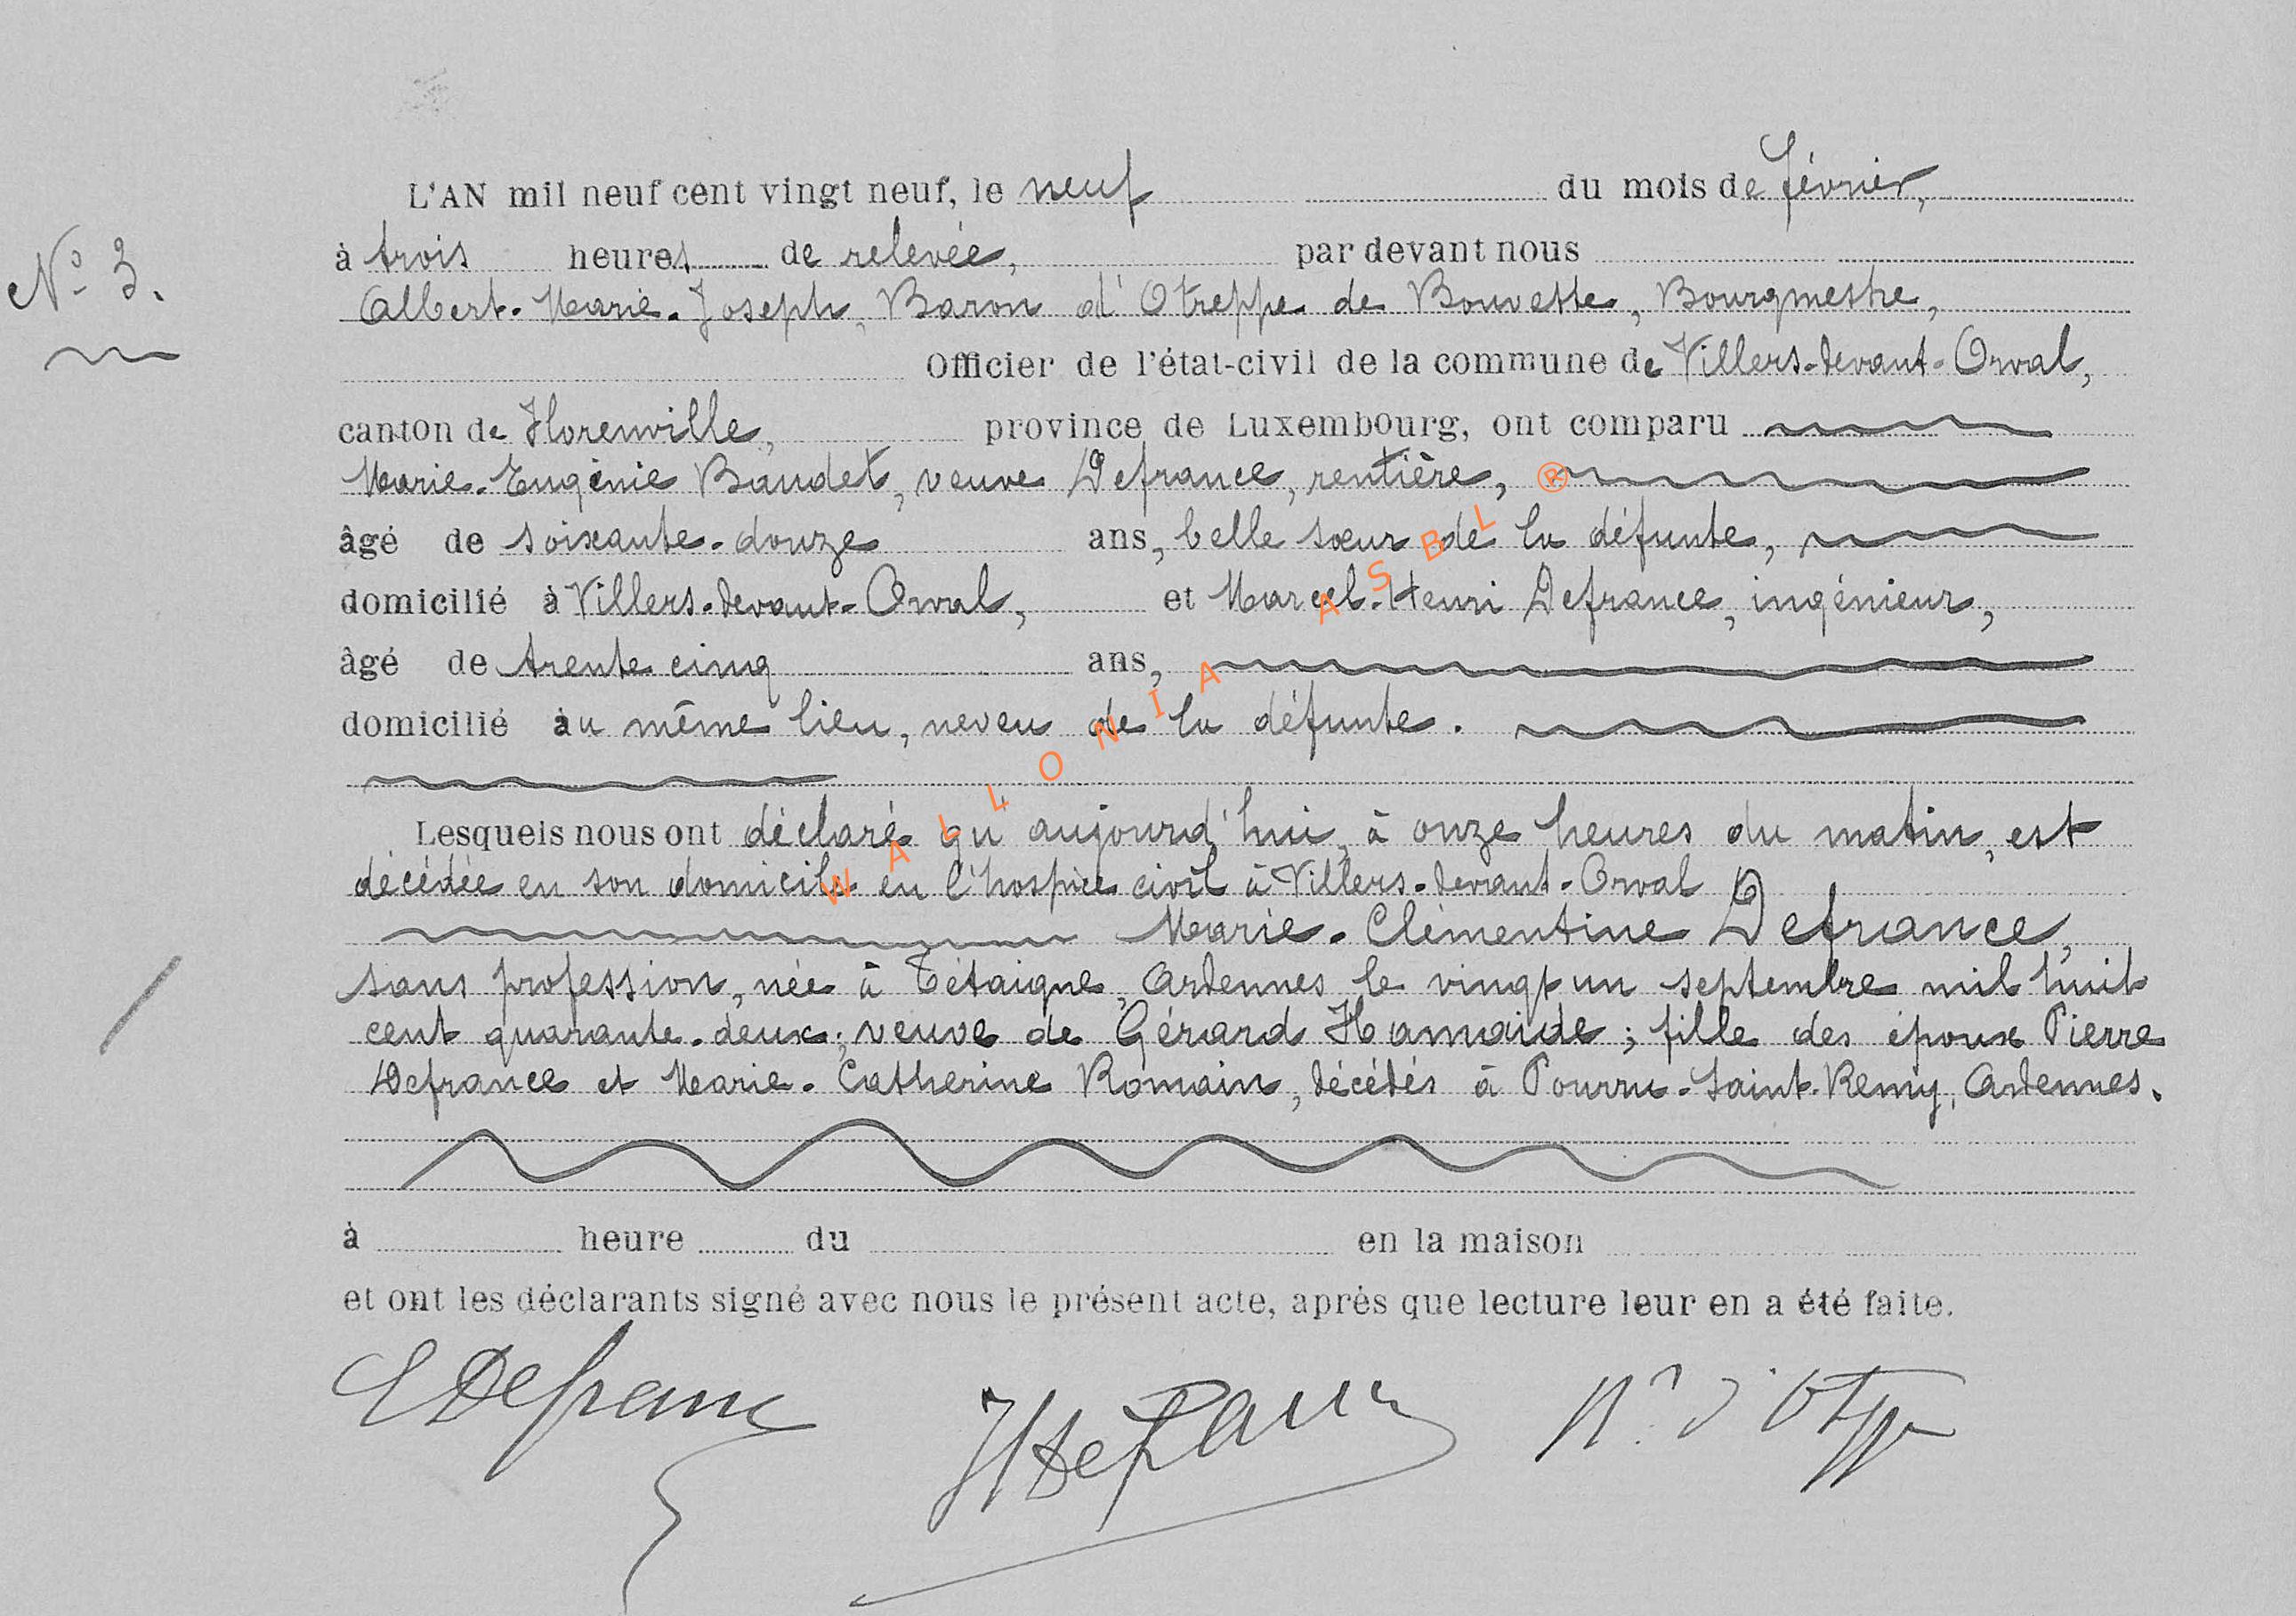 L'AN mil neuf cent vingt neuf, le neuf du mois de février,
N° 3.
à trois heures de relevée, par devant nous
Albert-Marie-Joseph, Baron d'Otreppe de Bouvette, Bourgmestre,
Officier de l'état-civil de la commune de Villers-devant-Orval,
canton de Florenville, province de Luxembourg, ont comparu
Marie-Eugénie Baudet, veuve Defrance, rentière,
âgé de soixante-douze ans, belle sœur de la défunte,
domicilié à Villers-devant-Orval, et Marcel-Henri Defrance, ingénieur,
âgé de trente cinq ans,
domicilié au même lieu, neveu de la défunte.
Lesquels nous ont déclaré qu'aujourd'hui, à onze heures du matin, est
décédée en son domicile en l'hospice civil à Villers-devant-Orval
Marie-Clémentine Defrance,
sans profession, née à Tétaigne, Ardennes le vingt un septembre mil huit
cent quarante-deux; veuve de Gérard Hamaide; fille des époux Pierre
Defrance et Marie-Catherine Romain, décédés à Pourru-Saint-Remy, Ardennes.
à heure du en la maison
et ont les déclarants signé avec nous le présent acte, après que lecture leur en a été faite.
WALLONIA ASBL ®